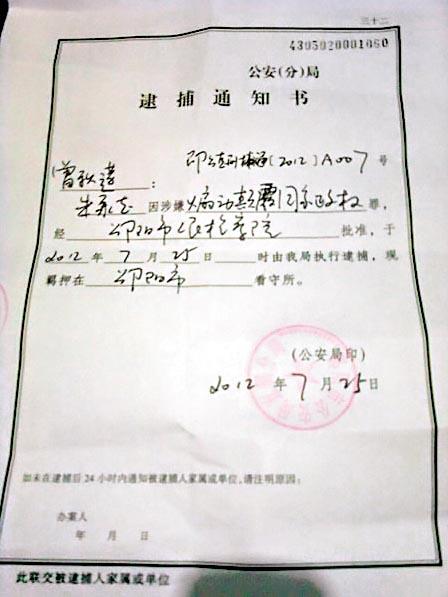 三十二
4305020001060
公安(分)局
逮捕通知书
邵公直刑捕通(2012)A007号
曾秋莲:
朱承志 因涉嫌 煽动颠覆国家政权 罪,
经 邵阳市人民检察院 批准,于
2012年7月25日 时由我局执行逮捕,现
羁押在 邵阳市 看守所。
(公安局印)
2012年7月25日
如未在逮捕后24小时内通知被逮捕人家属或单位,请注明原因:
办案人
年 月 日
此联交被逮捕人家属或单位